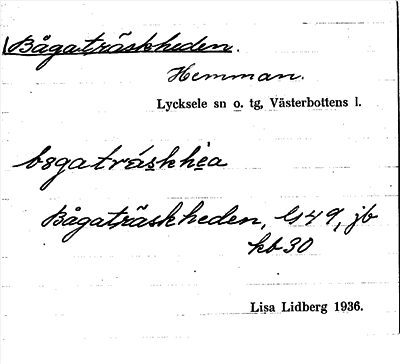 Bågaträskheden.
Hemman.
Lycksele sn o. tg, Västerbottens l.
Bågaträskheden, jb
kb 30
Lisa Lidberg 1936.